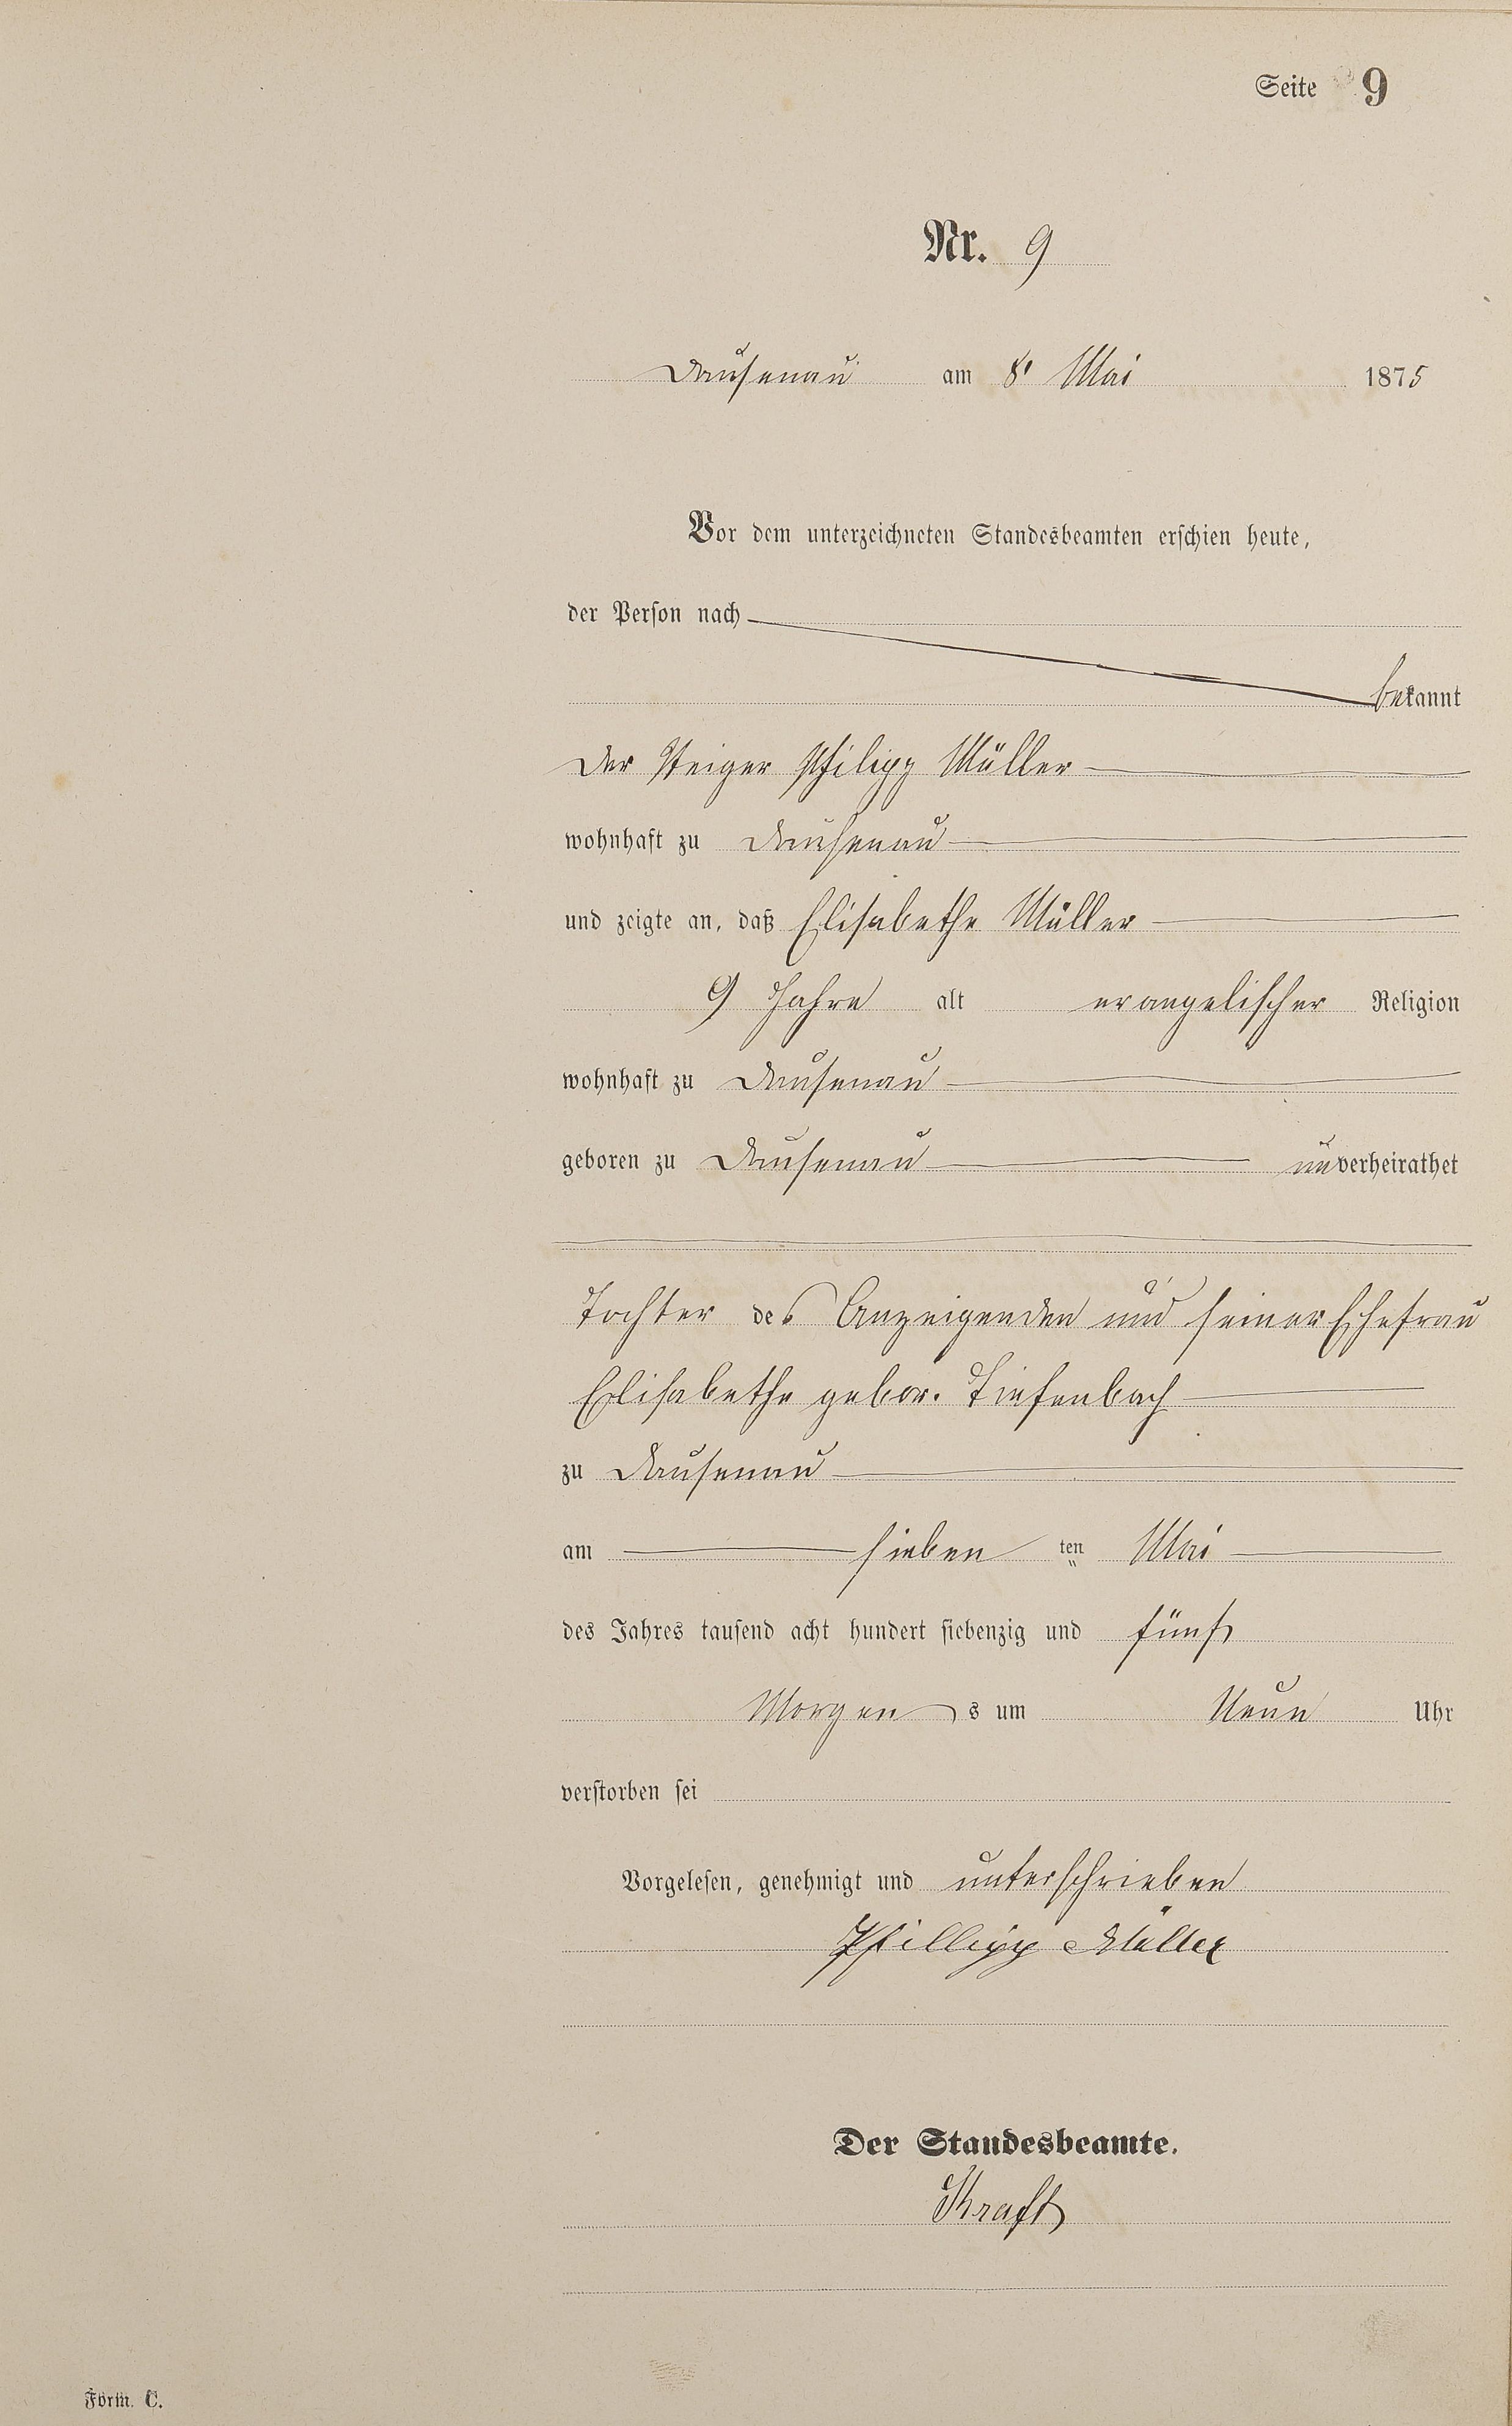 Seite 9
Nr. 9
Dausenau am 8' Mai 1875
Vor dem unterzeichneten Standesbeamten erschien heute,
der Person nach
bekannt
der Steiger Philipp Müller
wohnhaft zu Dausenau
und zeigte an, daß Elisabethe Müller
9 Jahre alt evangelischer Religion
wohnhaft zu Dausenau
geboren zu Dausenau unverheirathet
Tochter des Anzeigenden und seiner Ehefrau
Elisabethe gebor. Tiefenbach
zu Dausenau
am sieben ten Mai
des Jahres tausend acht hundert siebenzig und fünf
Morgens um Neun Uhr
verstorben sei
Vorgelesen, genehmigt und unterschrieben
Phillipp Müller
Der Standesbeamte.
Kraft
Form. C.